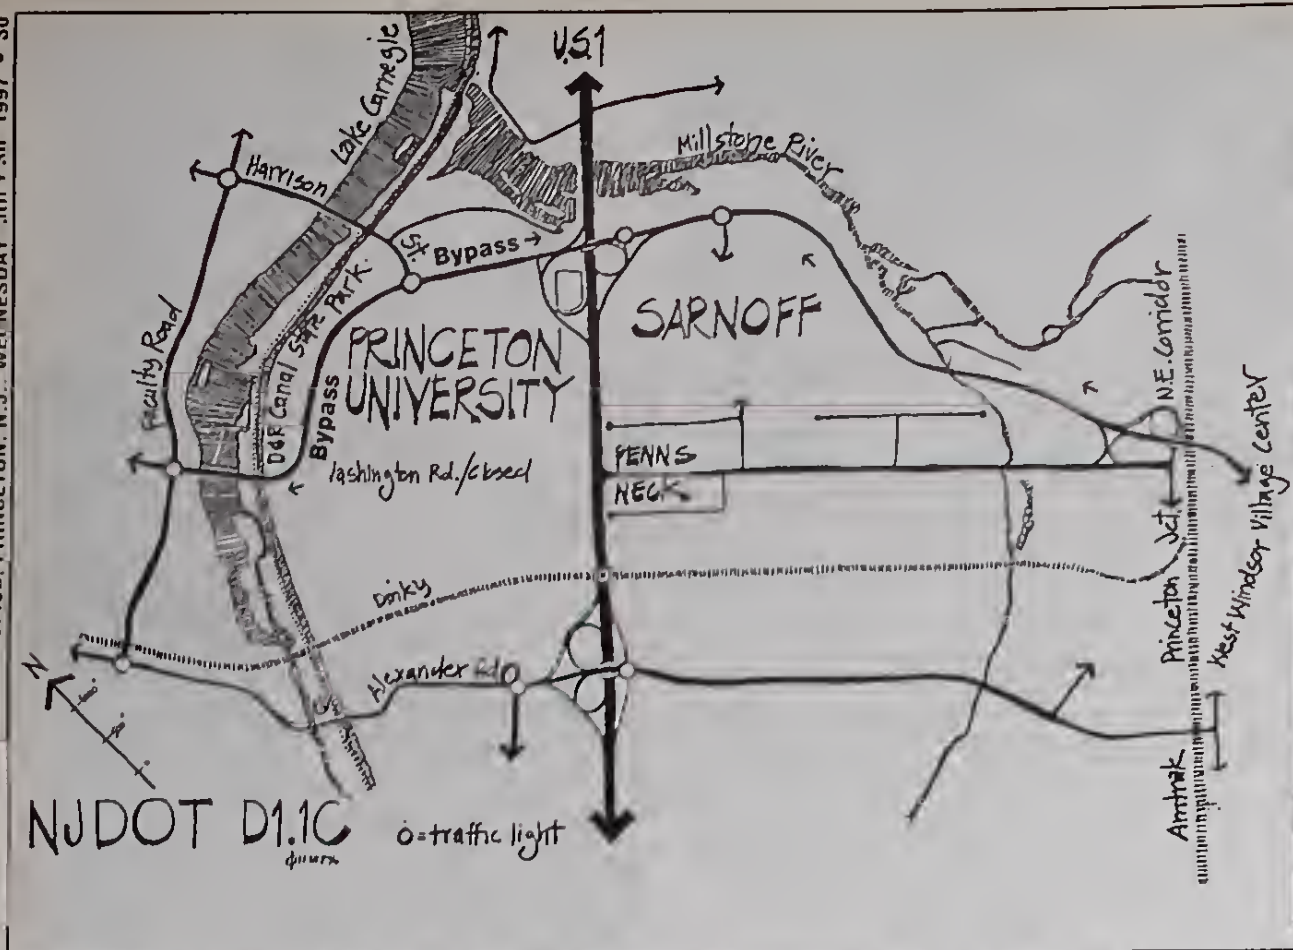 PRINCETON, N.J., WEDNESDAY
1997 • 30
U.S.1
Lake Carnegie
Harrison
St.
Millstone River
Bypass →
Faculty Road
D&R Canal State Park
Bypass
PRINCETON
UNIVERSITY
SARNOFF
N.E. Corridor
West Windsor Village Center
Washington Rd./closed
PENNS
NECK
Princeton Jct.
Dinky
Alexander Rd
Amtrak
N
NJDOT D1.1C
o=traffic light